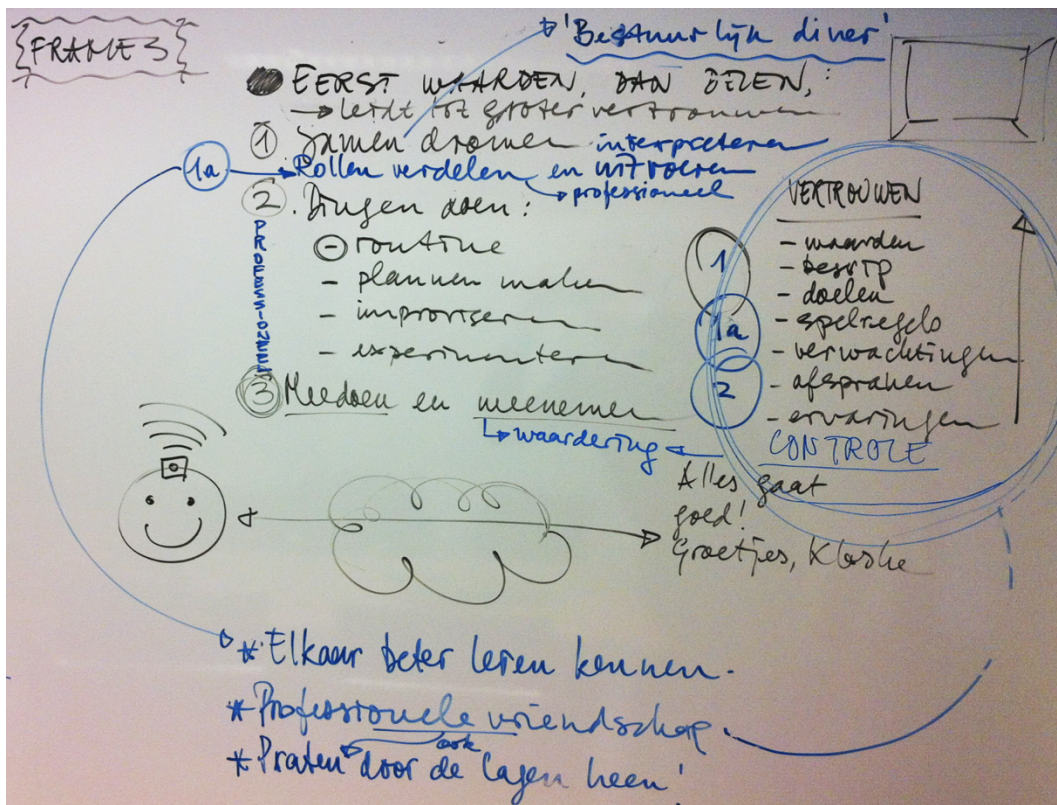 FRAME 3
'Bestuurlijk diner'
EERST WAARDEN, DAN DELEN,:
→ leidt tot groter vertrouwen
1 Samen dromen interpreteren
1a → Rollen verdelen en uitvoeren
→ professioneel
2. Dingen doen:
PROFESSIONEEL
- routine
- plannen maken
- improviseren
- experimenteren
3 Meedoen en meenemen
→ waardering
VERTROUWEN
1
- waarden
- begrip
- doelen
1a
- spelregels
- verwachtingen
2
- afspraken
- ervaringen
CONTROLE
Alles gaat
goed!
Groetjes, Klaske
* Elkaar beter leren kennen.
* Professionele vriendschap
ook
* Praten door de lagen heen!